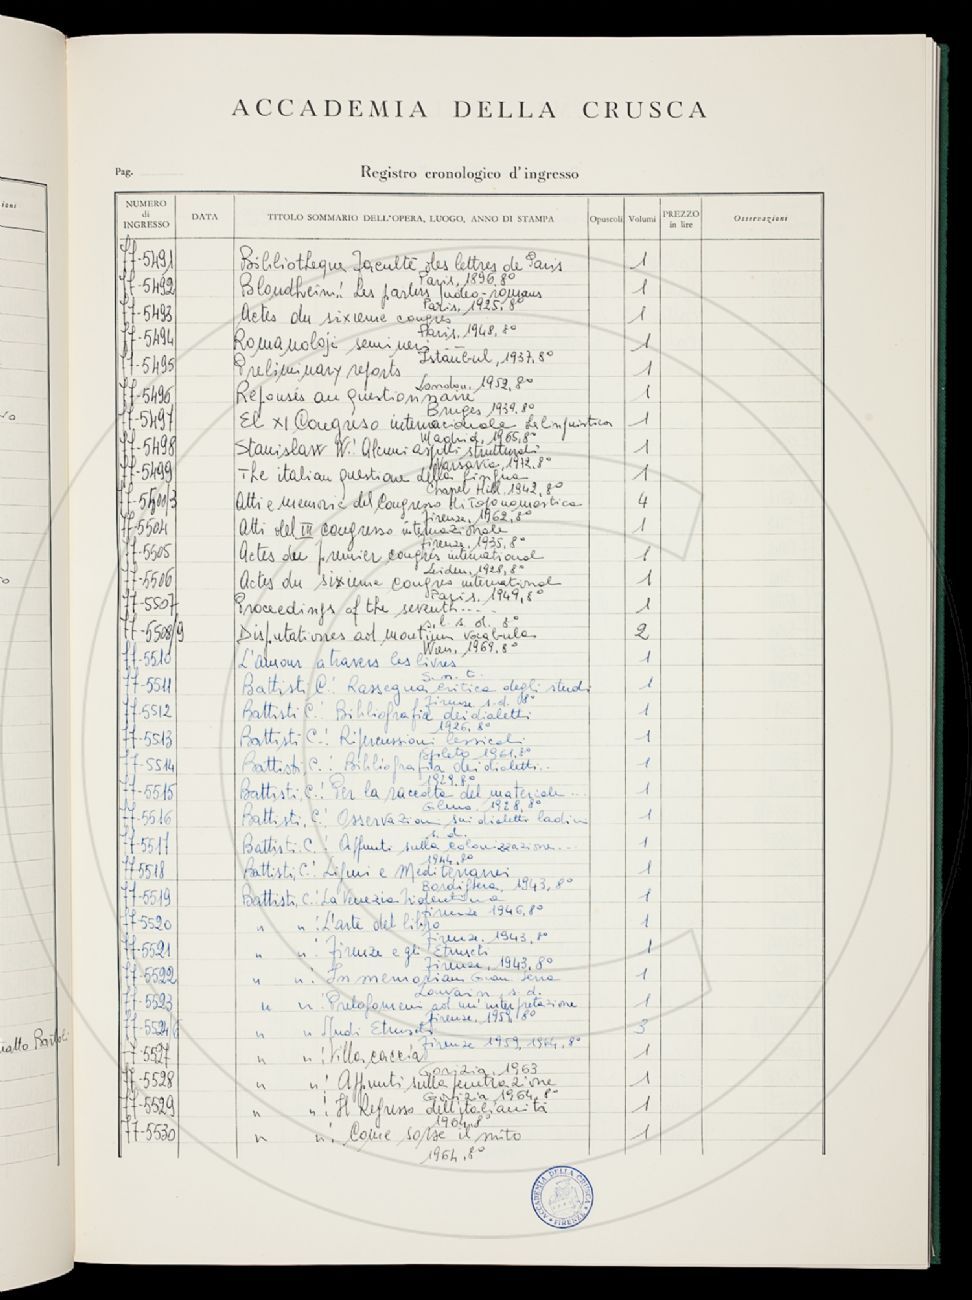 ACCADEMIA DELLA CRUSCA
Pag.
Registro cronologico d'ingresso
NUMERO di INGRESSO DATA TITOLO SOMMARIO DELL'OPERA, LUOGO, ANNO DI STAMPA Opuscoli Volumi PREZZO in lire Osservazioni
77-5491 Bibliotheque Faculté des lettres de Paris 1
Paris, 1896, 8°
77-5492 Blondheim: Les parlers judeo-romans 1
Paris, 1925, 8°
77-5493 Actes du sixieme congres 1
Paris, 1948, 8°
77-5494 Romanoloji semineri 1
Istanbul, 1937, 8°
77-5495 Preliminary reports 1
London, 1952, 8°
77-5496 Réponses au questionnaire 1
Bruges 1939, 8°
77-5497 El XI Congreso internacional de linguistica 1
Madrid, 1965, 8°
77-5498 Stanislaw W.: Alcuni aspetti strutturali 1
Varsavia, 1972, 8°
77-5499 The italian questione della lingua 1
Chapel Hill, 1942, 8°
77-5500/3 Atti e memorie del Congresso di Toponomastica 4
Firenze, 1962, 8°
77-5504 Atti del III congresso internazionale 1
Firenze, 1935, 8°
77-5505 Actes du premier congres international 1
Leiden, 1928, 8°
77-5506 Actes du sixieme congres international 1
Paris, 1949, 8°
77-5507 Proceedings of the seventh.... 1
s.l. s.d. 8°
77-5508/9 Disputationes ad montium vocabula 2
Wien, 1969, 8°
77-5510 L'amour a travers les livres 1
77-5511 Battisti C.: Rassegna critica degli studi 1
Firenze s.d. 8°
77-5512 Battisti C.: Bibliografia dei dialetti 1
1926, 8°
77-5513 Battisti C.: Ripercussioni lessicali 1
Spoleto 1961, 8°
77-5514 Battisti, C.: Bibliografia dei dialetti.. 1
1929, 8°
77-5515 Battisti, C.: Per la raccolta del materiale... 1
1928, 8°
77-5516 Battisti, C.: Osservazioni sui dialetti ladini 1
s.d.
77-5517 Battisti C.: Appunti sulla colonizzazione... 1
1944, 8°
77 5518 Battisti, C.: Liguri e Mediterranei 1
Bordighera, 1943, 8°
77-5519 Battisti, C.: La Venezia tridentina 1
Firenze 1946, 8°
77-5520 " " : L'arte del libro 1
Firenze, 1943, 8°
77-5521 " " : Firenze e gli Etruschi 1
Firenze, 1943, 8°
77-5522 " " : In memoriam Gian Serra 1
Louvain s.d.
77-5523 " " : Prolegomeni ad un'interpretazione 1
Firenze, 1959, 8°
77-5524/6 " " Studi Etruschi 3
Firenze 1959, 1964, 8°
77-5527 " " : Villa caccia 1
Gorizia, 1963
77-5528 " " : Appunti sulla penetrazione 1
Gorizia 1964, 8°
77-5529 " " : Il Regresso dell'italianità 1
1964, 8°
77-5530 " " : Come sorse il mito 1
1964, 8°
ACCADEMIA DELLA CRUSCA
FIRENZE